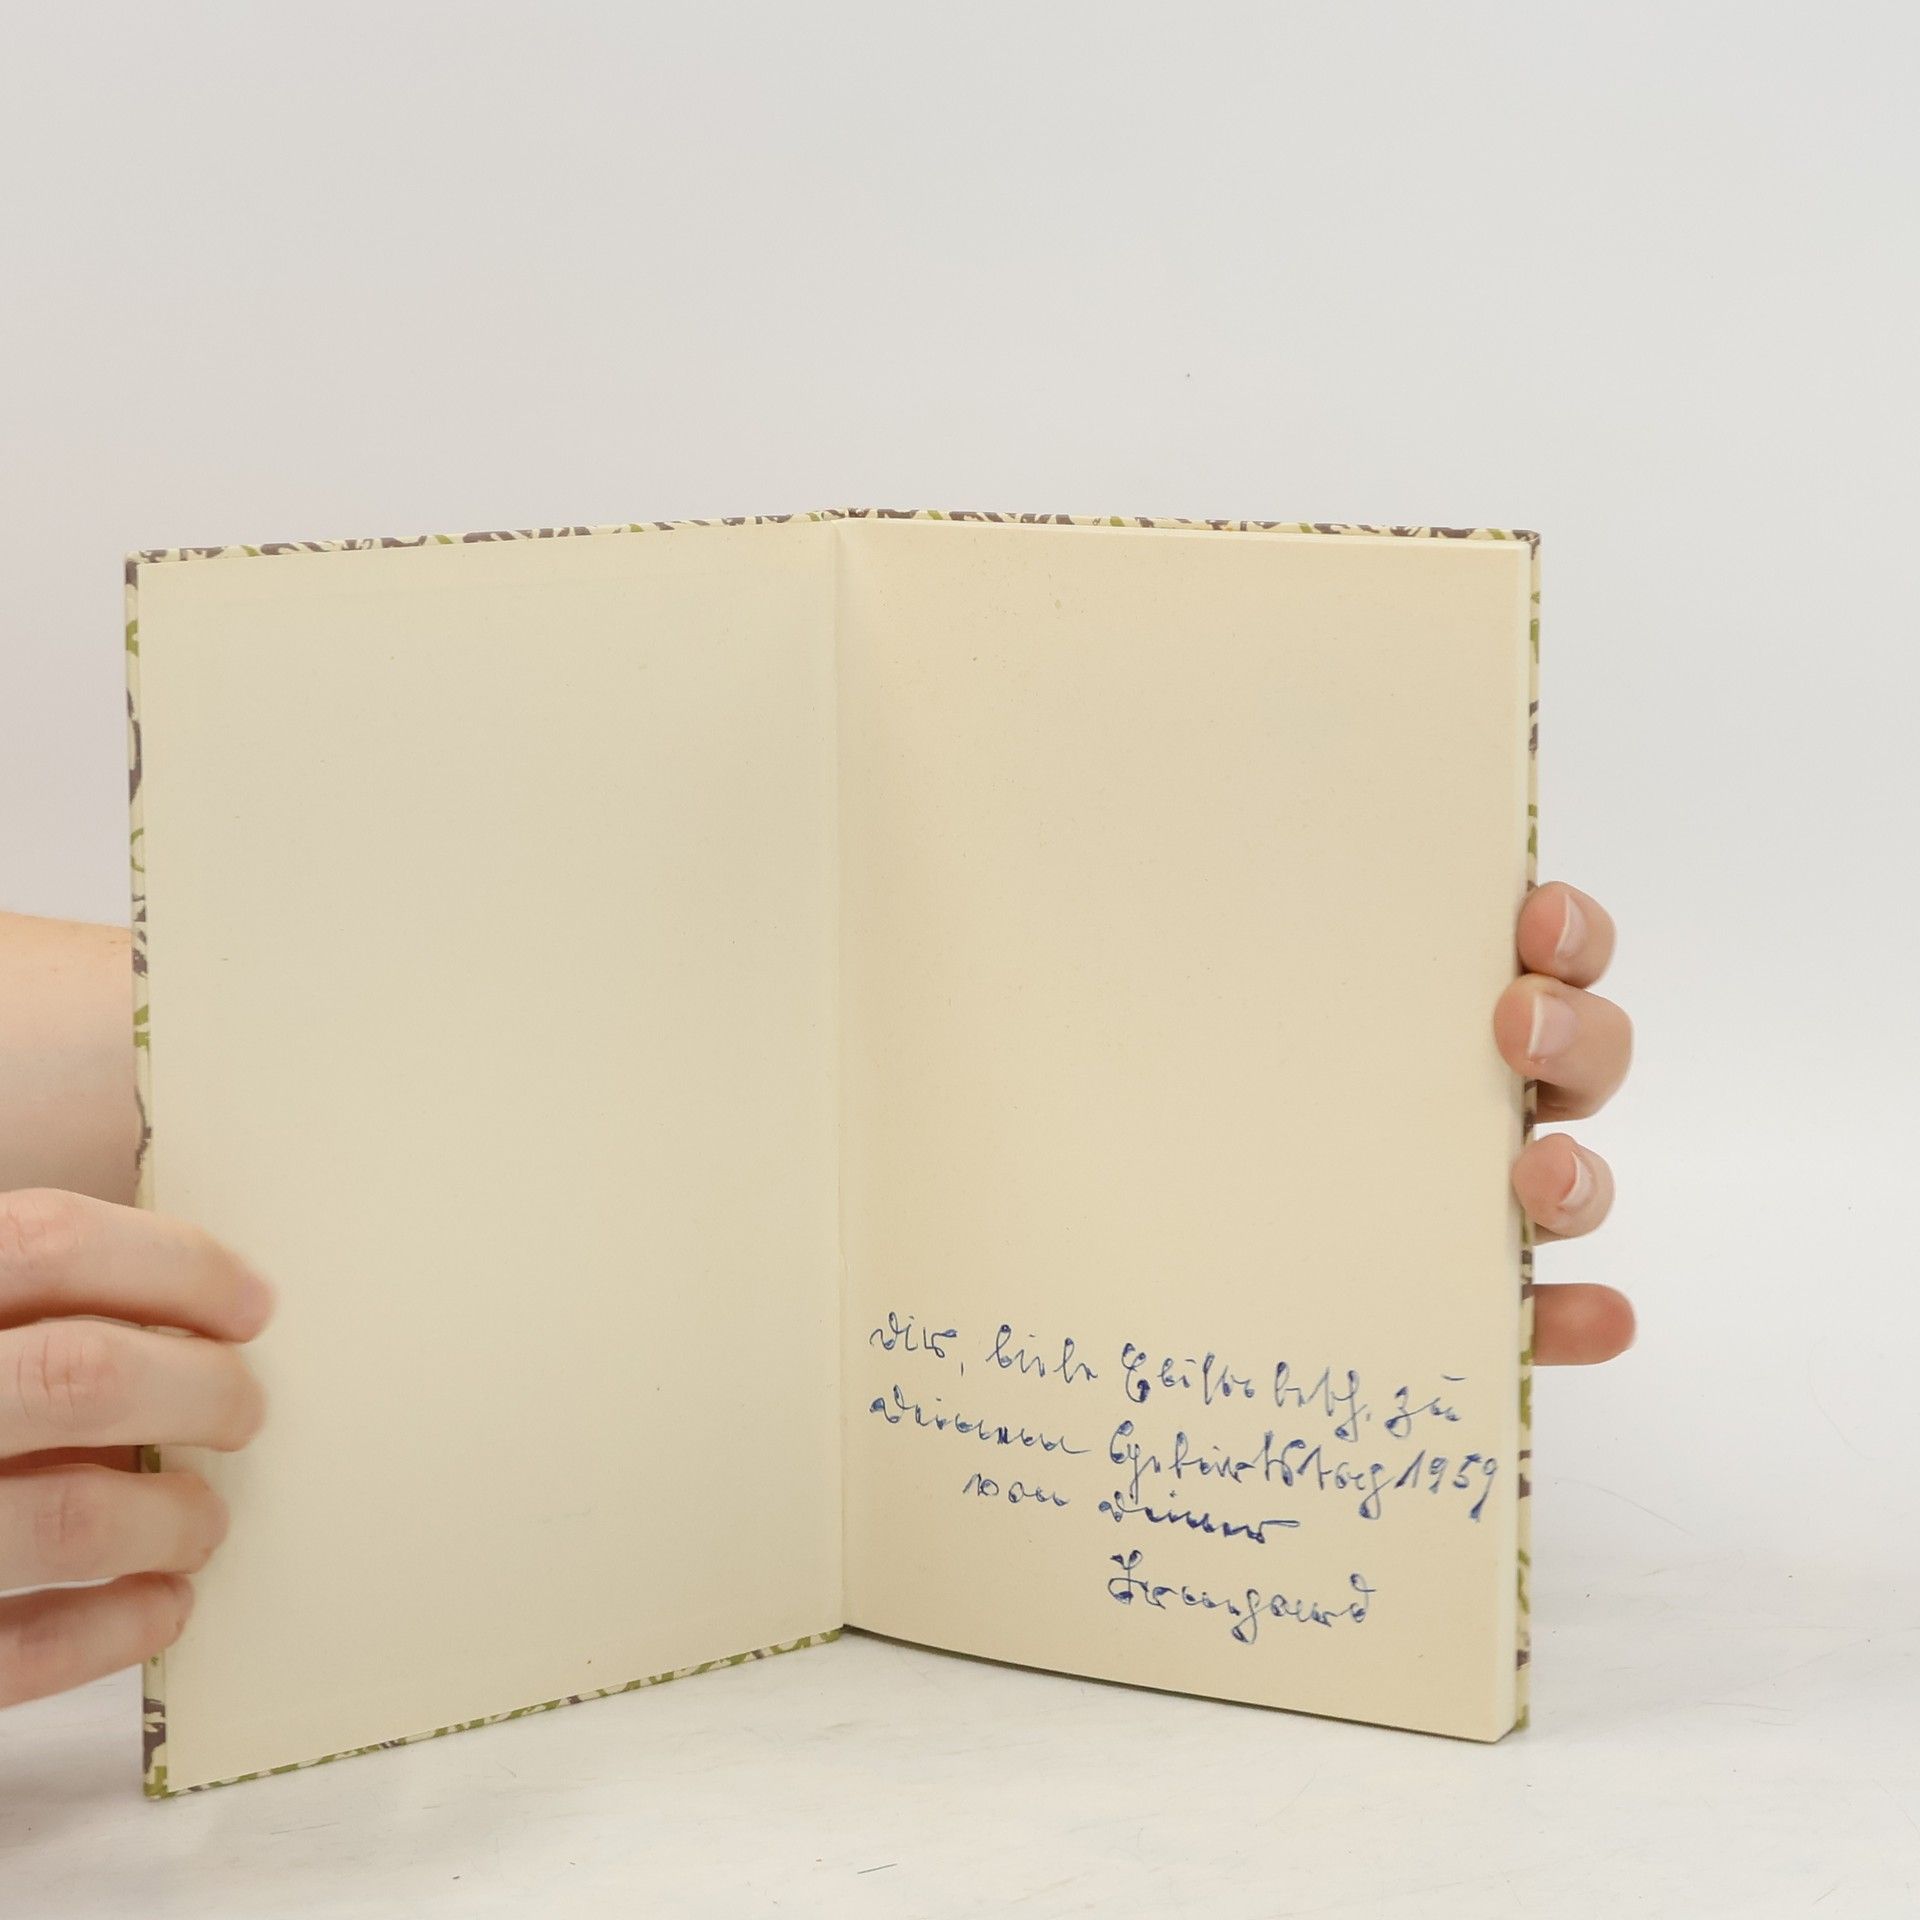 Dir, liebe Elisabeth, zu
Deinem Geburtstag 1959
von Deiner
Irmgard